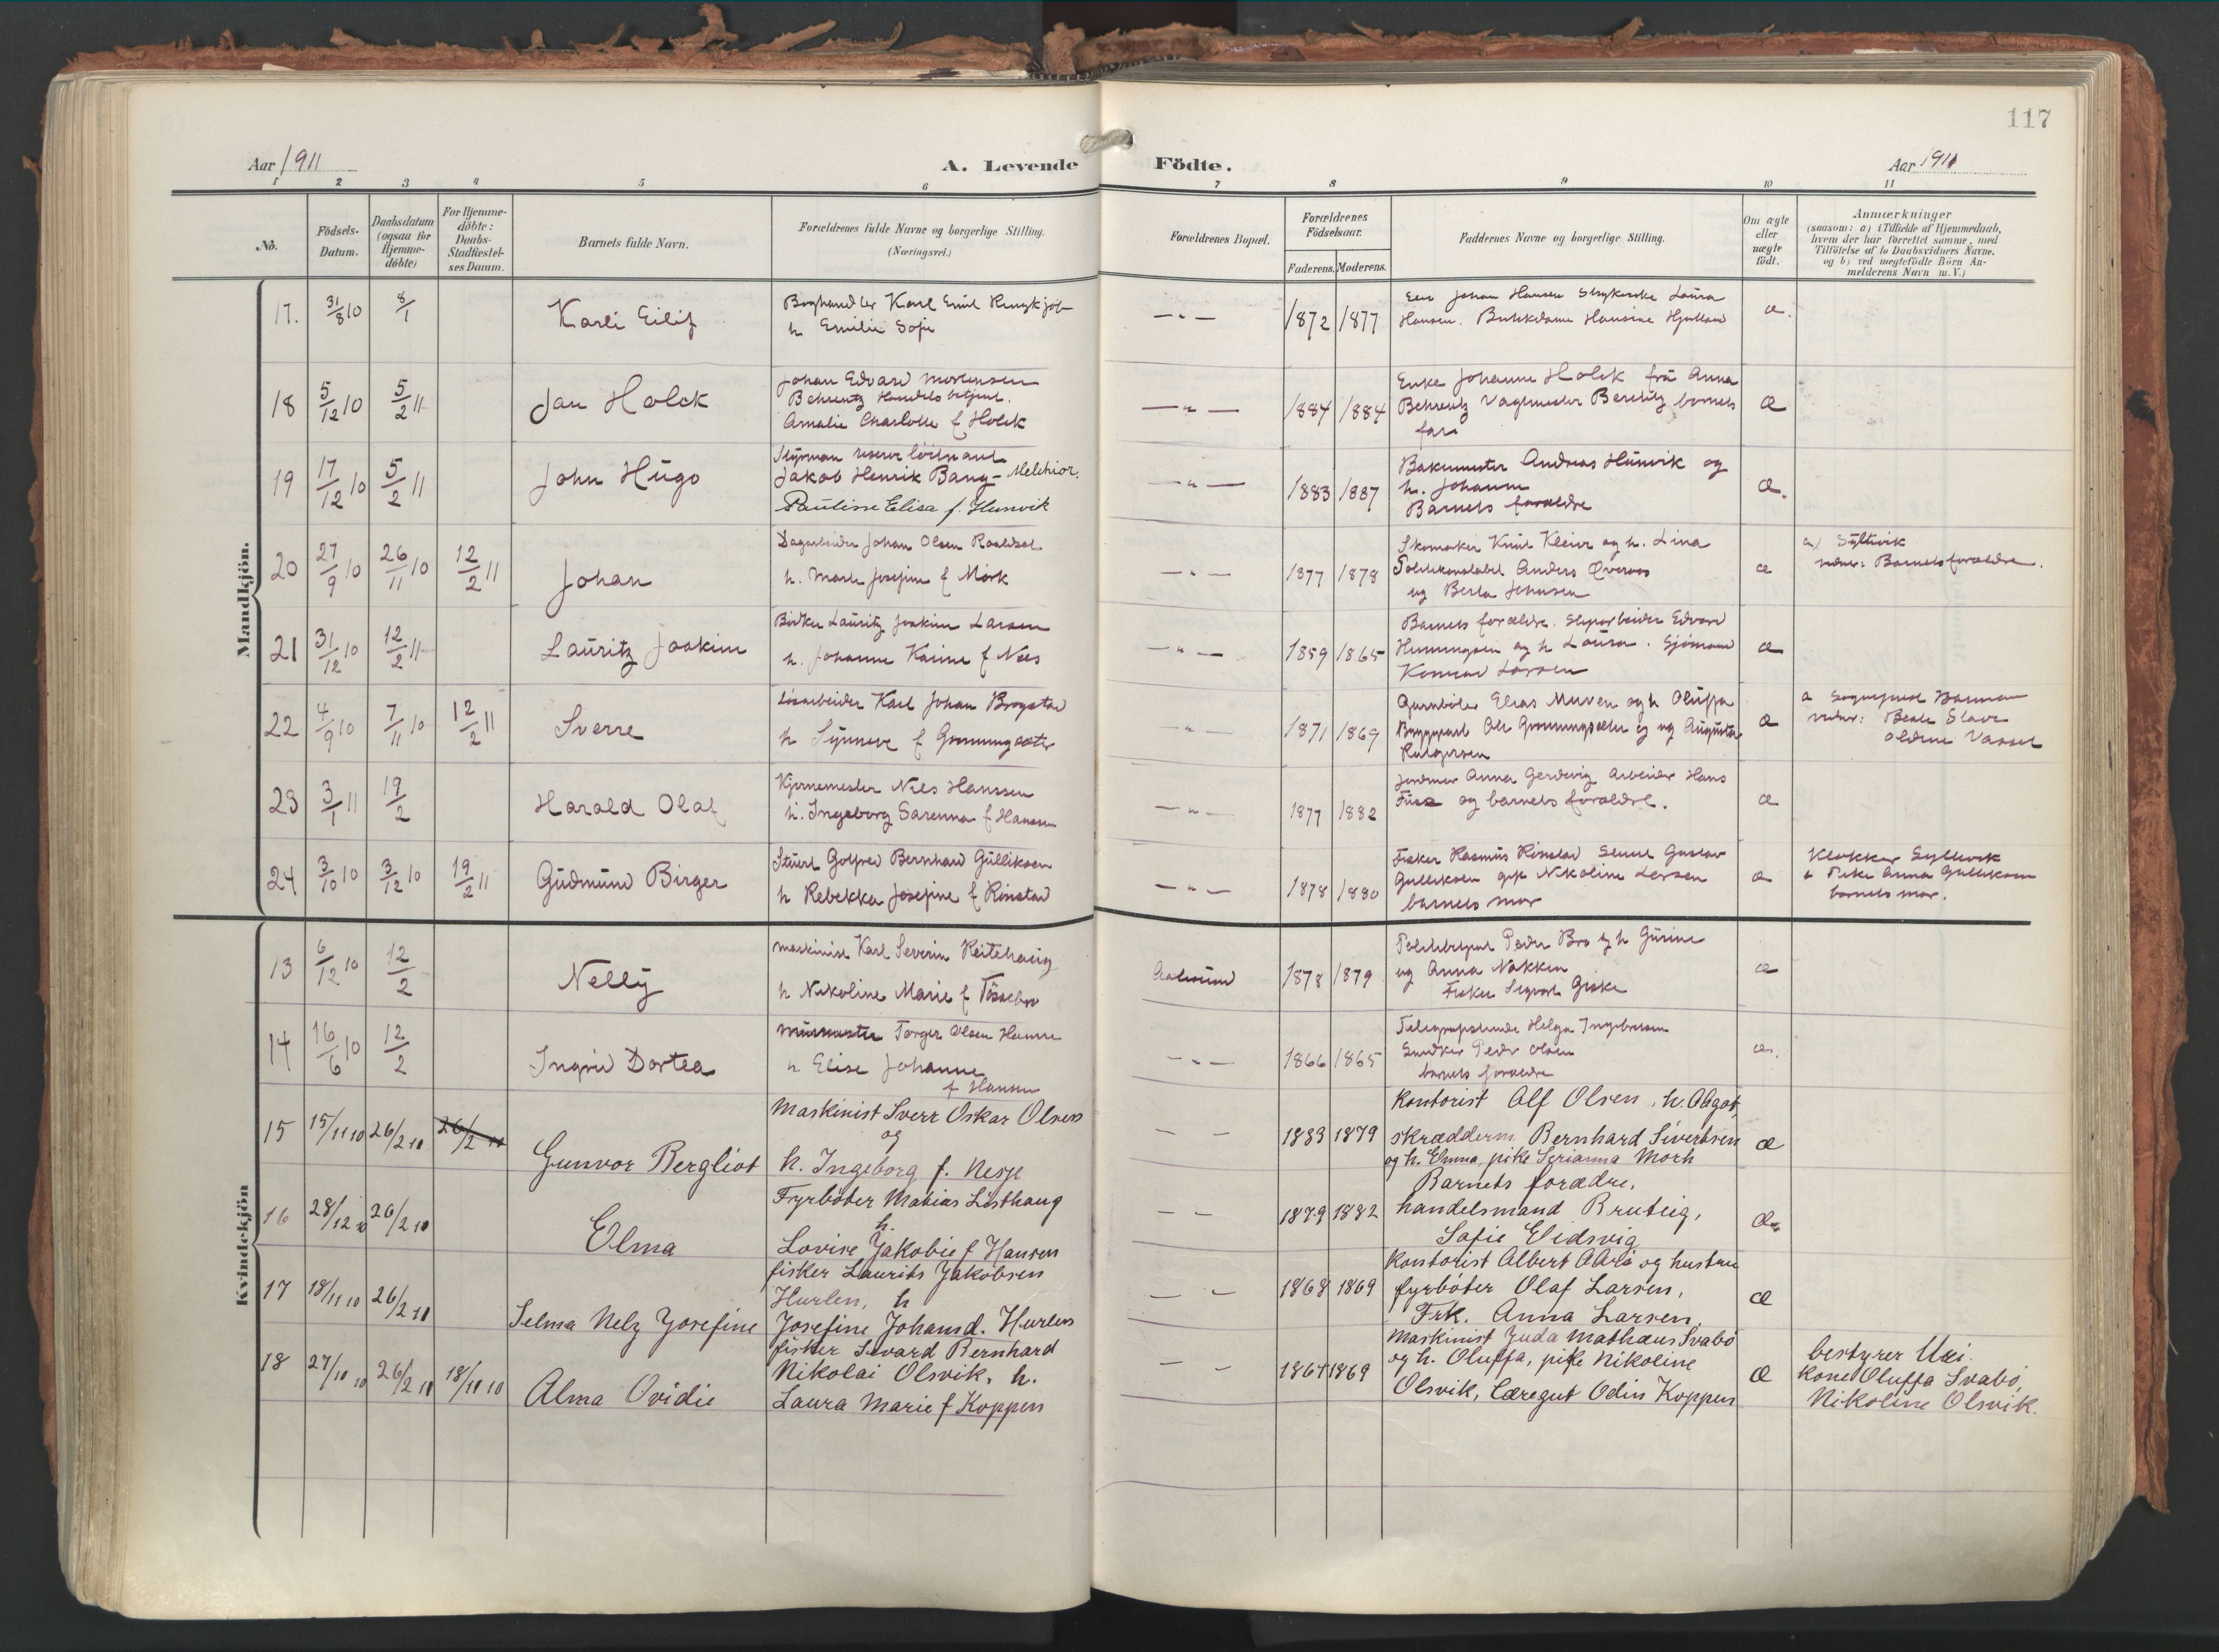 117
Aar 1911
A. Levende Födte.
Aar 1911
1 2 3 4 5 6 7 8 9 10 11
No.
Födsels-
Datum.
Daabsdatum
(ogsaa for
Hjemme-
döbte)
For Hjemme-
döbte:
Daabs-
Stadfæstel-
ses Datum.
Barnets fulde Navn.
Forældrenes fulde Navne og borgerlige Stilling.
(Næringsvei.)
Forældrenes Bopæl.
Forældrenes
Födselsaar.
Faderens. Moderens.
Faddernes Navne og borgerlige Stilling.
Om ægte
eller
uægte
födt.
Anmærkninger
(saasom: a) i Tilfælde af Hjemmedaab,
hvem der har forrettet samme, med
Tilföielse af to Daabsvidners Navne.
og b) ved uægtefödte Börn An-
melderens Navn m. V.)
Mandkjön.
17. 31/8 10 8/1
Karli Eilif
Boghandler Karl Emil
h Emilie Sofie
— " —
1872 1877
Johan Hansen Laura
Hansen. Hansine
æ.
18 5/12 10 5/2 11
Jan Holck
Johan Edvard Mortensen
Behrentz Handelsbetjent.
Amalie Charlotte f Holck
— " —
1884 1884
Enke Johanne Holck frü Anna
Behrentz barnets
far
æ
19 17/12 10 5/2 11
John Hügo
Styrman reserve löitnant
Jakob Henrik Bang-Melchior.
Pauline Elisa f. Hunvik
— " —
1883 1887
Bakermester Andreas Hünvik og
h. Johanne
Barnets forældre
æ.
20 27/9 10 26/11 10 12/2 11
Johan
Dagarbeider Johan Olsen Roaldset
h. Marte Josefine f Mörk
— " —
1877 1878
Skomaker Knut Kleive og h. Lina
Politikonstabel Anders Överaas
og Berta Johnsen
æ
a) Syltevik
vidner: Barnets forældre.
21 31/12 10 12/2 11
Lauritz Joakim
Bödker Lauritz Joakim Larsen
h. Johanne Karine f Næs
— " —
1859 1865
Barnets forældre. Edvard
Henningsen og h Laura. Sjömand
Konrad Larsen
æ
22 4/9 10 7/11 10 12/2 11
Sverre
Lösarbeider Karl Johan Brogstad
h Synneve f Grönningsæter
— " —
1871 1869
Elias Muren og h Oluffa
og Augusta
æ
a Sogneprest Barman
vidner: Beate Slave
Oldine Vassel
23 3/1 11 19/2
Harald Olaf
Nils Hanssen
h. Ingeborg Sarenna f Hanssen
— " —
1877 1882
Jordmor Anna Gerdevig Arbeider Hans
og barnets forældre.
æ
24 3/10 10 3/12 10 19/2 11
Güdmünd Birger
Stuert Gotfred Bernhard Gülliksen
h Rebekka Josefine f Rinstad
— " —
1878 1880
Fisker Rasmus Rinstad Stuert Gustav
Gulliksen Nikoline Larsen
barnets mor
æ
Klokker Syltevik
a Pike Anna Gulliksen
barnets mor.
Kvindekjön
13 6/12 10 12/2
Nelly
Maskinist Karl Severin Reitehaug
h Nikoline Marie f Tössebro
Aalesund
1878 1879
Politibetjent Peder Bro og h Gurine
og Anna Nakken
Fisker Sigvart Giske
æ
14 16/6 10 12/2
Ingrid Dortea
Murmester Torger Olsen Hamre
h Elise Johanne
f Hansen
— " —
1866 1865
Helga Ingebretsen
Snedker Peder Olsen
barnets forældre
æ.
15 15/11 10 26/2 11 26/2 11
Gunvor Bergliot
Maskinist Sverr Oskar Olsen
og
h. Ingeborg f. Nesje
— —
1883 1879
Kontorist Alf Olsen, h. Abgot,
skrædderm. Bernhard Sivertsen
og h. Emma, pike Serianna Mork
æ
16 28/12 10 26/2 11
Elma
Fyrböter Matias Listhaug
h.
Lovise Jakobie f Hansen
— —
1879 1882
Barnets forædre,
handelsmand Bruteig,
Sofie Eidsvig
æ
17 18/11 10 26/2 11
Selma Nelz Josefine
fisker Laurits Jakobsen
Hurlen, h
Josefine Johansd. Hurlen
— —
1868 1869
Kontorist Albert Aarö og hustru
fyrböter Olaf Larsen,
Frk. Anna Larsen
æ
18 27/10 10 26/2 11 18/11 10
Alma Ovidie
fisker Sevard Bernhard
Nikolai Olsvik, h.
Laura Marie f Koppen
— —
1864 1869
Maskinist Juda Mathæus Svabö
og h. Oluffa, pike Nikoline
Olsvik, Læregut Odin Koppen
æ
bestyrer Uri.
Kone Oluffa Svabö,
Nikoline Olsvik.